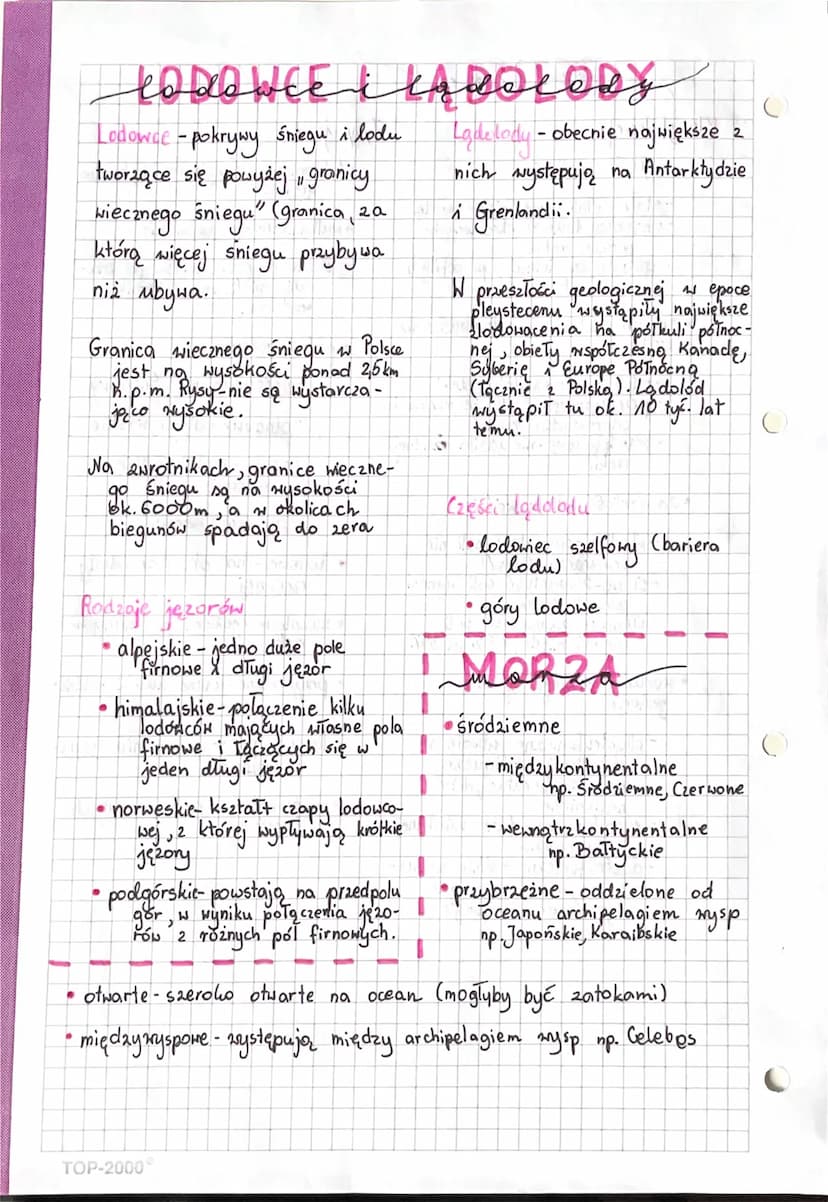 LODOWCE I LĄDOLODY
lodowce i lądolody
Lodowce - pokrywy śniegu i lodu
tworzące się powyżej „granicy
wiecznego śniegu" (granica, za
którą więcej śniegu przybywa
niż ubywa.
Granica wiecznego śniegu w Polsce
jest na wysokości ponad 2,5km
n.p.m. Rysy-nie są wystarcza-
jąco wysokie.
Na zwrotnikach, granice wieczne-
go śniegu są na wysokości
ok. 6000m, a w okolicach
biegunów spadają do zera
Rodzaje jęzorów
• alpejskie - jedno duże pole
firnowe i długi jęzor
• himalajskie - połączenie kilku
lodowców mających własne pola
firnowe i łączących się w
jeden długi jęzor
• norweskie - kształt czapy lodowco-
wej, z której wypływają krótkie
jęzory
• podgórskie - powstają na przedpolu
gór, w wyniku połączenia jęzo-
rów z różnych pól firnowych.
Lądolody - obecnie największe z
nich występują na Antarktydzie
i Grenlandii.
W przeszłości geologicznej w epoce
pleystecenu wystąpiły największe
zlodowacenia na półkuli północ-
nej, obieły współczesną Kanadę,
Syberię i Europe Północną
(łącznie z Polską). Lądolód
wystąpił tu ok. 10 tyś. lat
temu.
Części lądolodu
• lodowiec szelfowy (bariera
lodu)
• góry lodowe
MORZA
morza
• śródziemne
- międzykontynentalne
np. Śródziemne, Czerwone
- wewnątrzkontynentalne
np. Bałtyckie
• przybrzeżne - oddzielone od
oceanu archipelagiem wysp
np. Japońskie, Karaibskie
• otwarte - szeroko otwarte na ocean (mogłyby być zatokami)
• międzywyspowe - występują między archipelagiem wysp np. Celebes
TOP-2000©